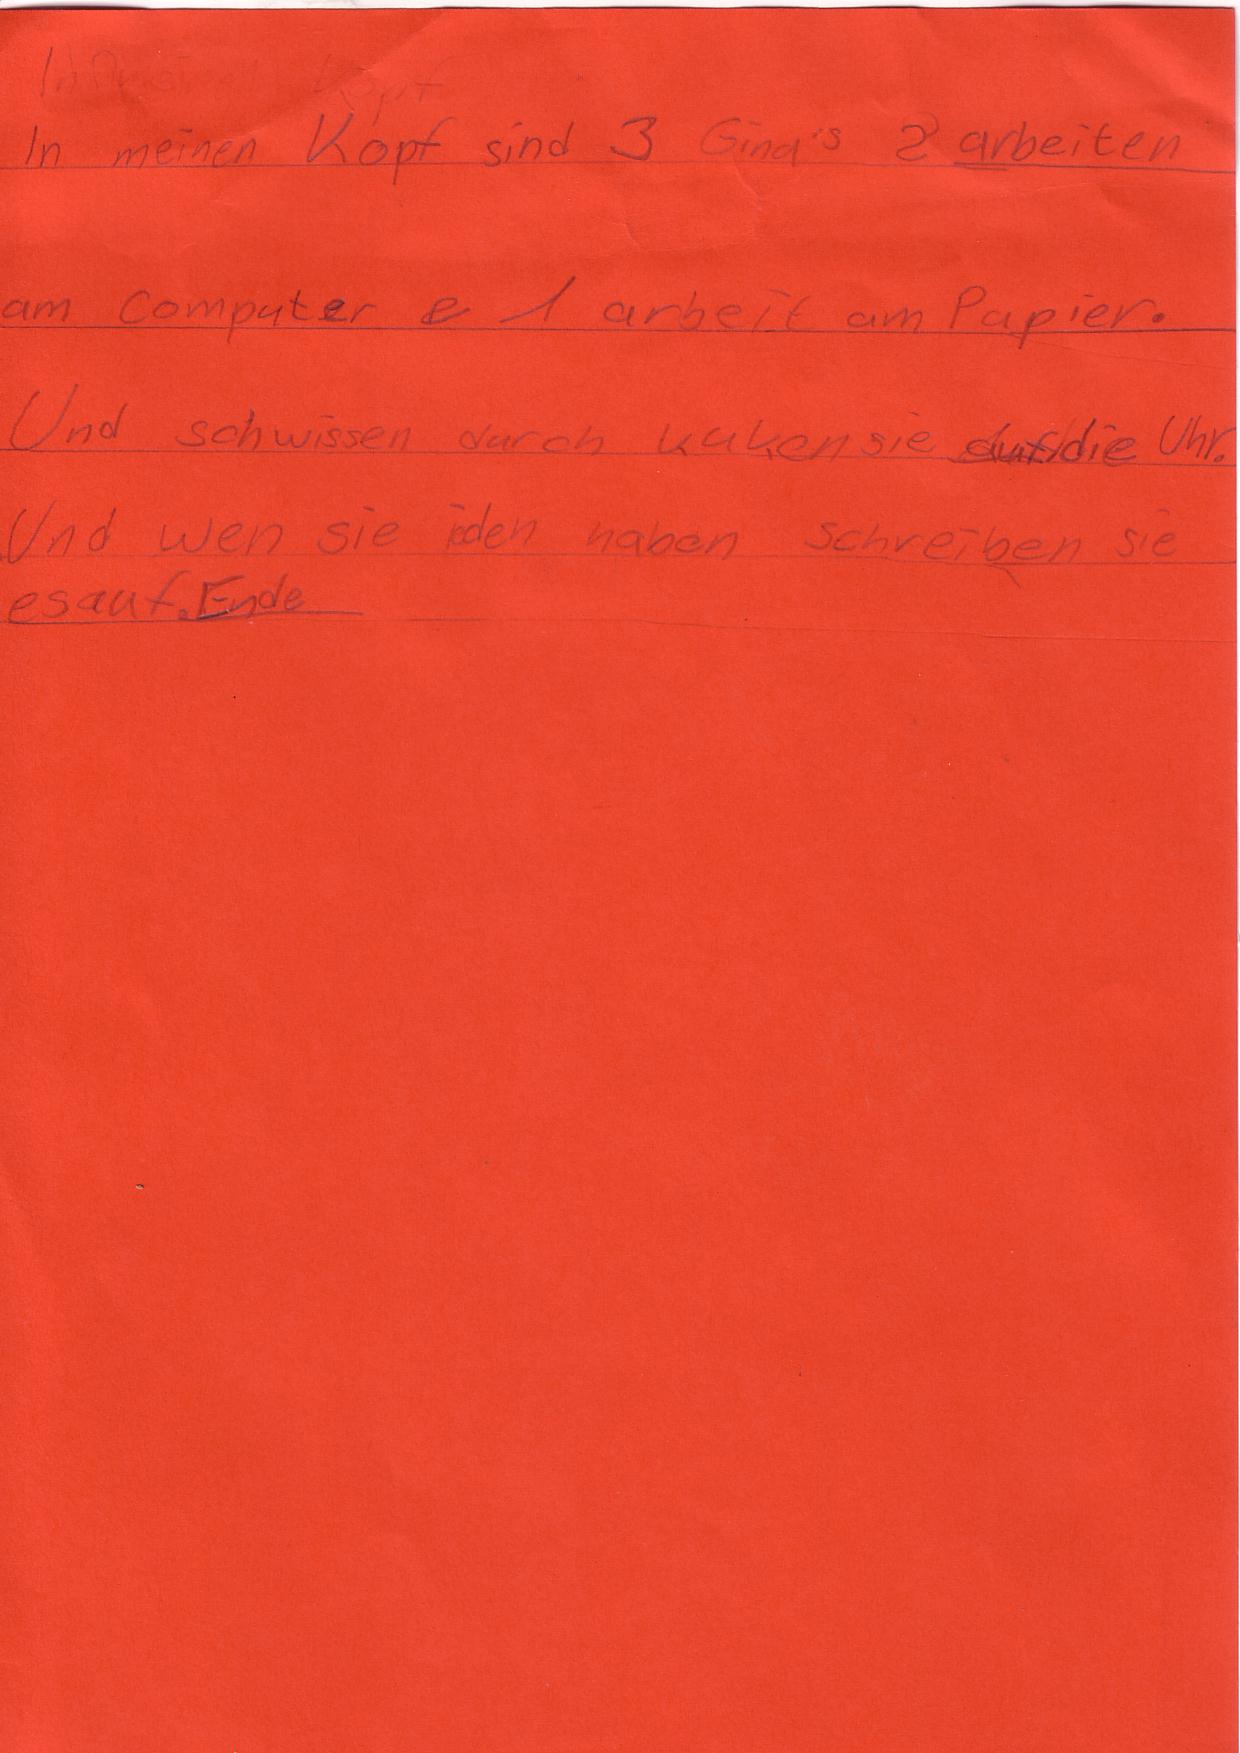 In meinen Kopf
In meinen Kopf sind 3 Gina's 2 arbeiten
am Computer e 1 arbeit am Papier.
Und schwissen durch kuken sie auf die Uhr.
Und wen sie iden haben schreiben sie
es auf. Ende